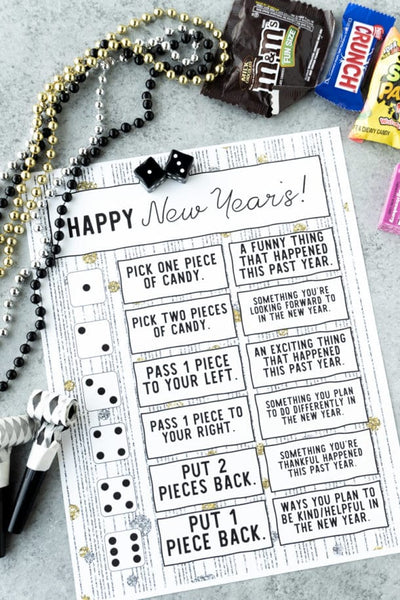 m&m's
MILK
FUN SIZE
CRUNCH
& CHEWY CANDY
HAPPY New Year's!
PICK ONE PIECE
OF CANDY.
A FUNNY THING
THAT HAPPENED
THIS PAST YEAR.
PICK TWO PIECES
OF CANDY.
SOMETHING YOU'RE
LOOKING FORWARD TO
IN THE NEW YEAR.
PASS 1 PIECE
TO YOUR LEFT.
AN EXCITING THING
THAT HAPPENED
THIS PAST YEAR.
PASS 1 PIECE TO
YOUR RIGHT.
SOMETHING YOU PLAN
TO DO DIFFERENTLY IN
THE NEW YEAR.
PUT 2
PIECES BACK.
SOMETHING YOU'RE
THANKFUL HAPPENED
THIS PAST YEAR.
PUT 1
PIECE BACK.
WAYS YOU PLAN TO
BE KIND/HELPFUL IN
THE NEW YEAR.